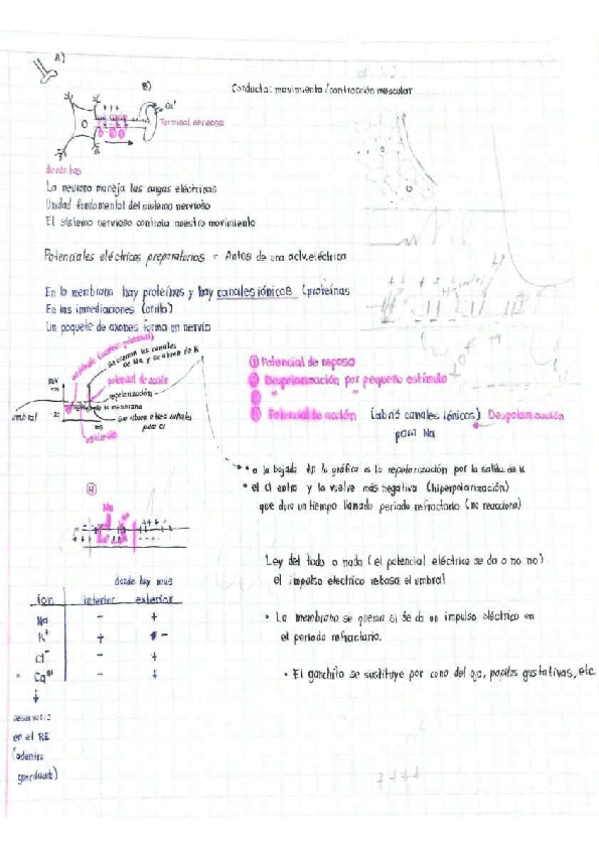 A)
B)
Conducta: movimiento / contracción muscular
Ca⁺
Terminal nerviosa
dendritas
La neurona maneja las cargas eléctricas
Unidad fundamental del sistema nervioso
El sistema nervioso controla nuestro movimiento
Potenciales eléctricos preparatorios = Antes de una activ. eléctrica
En la membrana hay proteínas y hay canales iónicos (proteínas
En las inmediaciones (orilla)
Un paquete de axones forma un nervio
se cierran los canales
de Na y se abren de K
potencial de acción
repolarización
de la membrana
Se abren otros canales
para Cl
mV
ms
umbral
estímulo
① Potencial de reposo
② Despolarización por pequeño estímulo
③ "
④ Potencial de acción (abrió canales iónicos) Despolarización
para Na
• a la bajada en la gráfica es la repolarización por la salida de K
• el Cl entra y la vuelve más negativa (hiperpolarización)
que dura un tiempo llamado periodo refractario (no reacciona)
④
Na
Ley del todo o nada (el potencial eléctrico se da o no no)
el impulso electrico rebasa el umbral
donde hay más
Ion interior exterior
Na - +
K⁺ + -
Cl⁻ - +
• Ca⁺⁺ - +
• La membrana se quema si se da un impulso eléctrico en
el periodo refractario.
• El ganchito se sustituye por cono del ojo, papilas gustativas, etc.
en el RE
(adentro